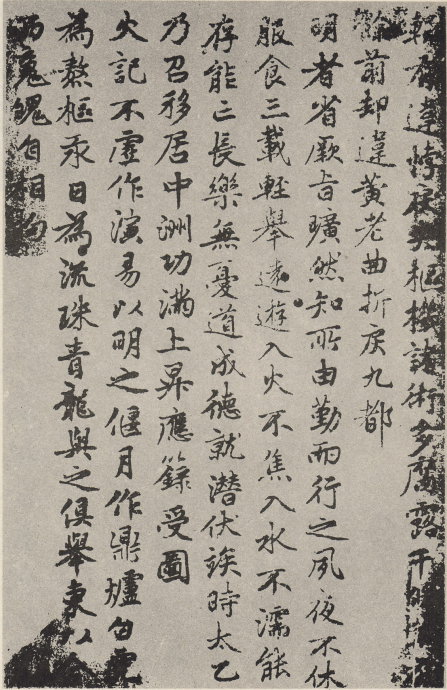 違悖失樞機諸術多千
餘前却違黃老曲折戾九都
明者省厥旨曠然知所由勤而行之夙夜不休
服食三載輕舉遠遊入火不焦入水不濡能
存能亡長樂無憂道成德就潜伏俟時太乙
乃召移居中洲功滿上昇應籙受圖
火記不虛作演易以明之偃月作鼎爐白虎
為熬樞汞日為流珠青龍與之俱舉東以合
西魂魄自相拘